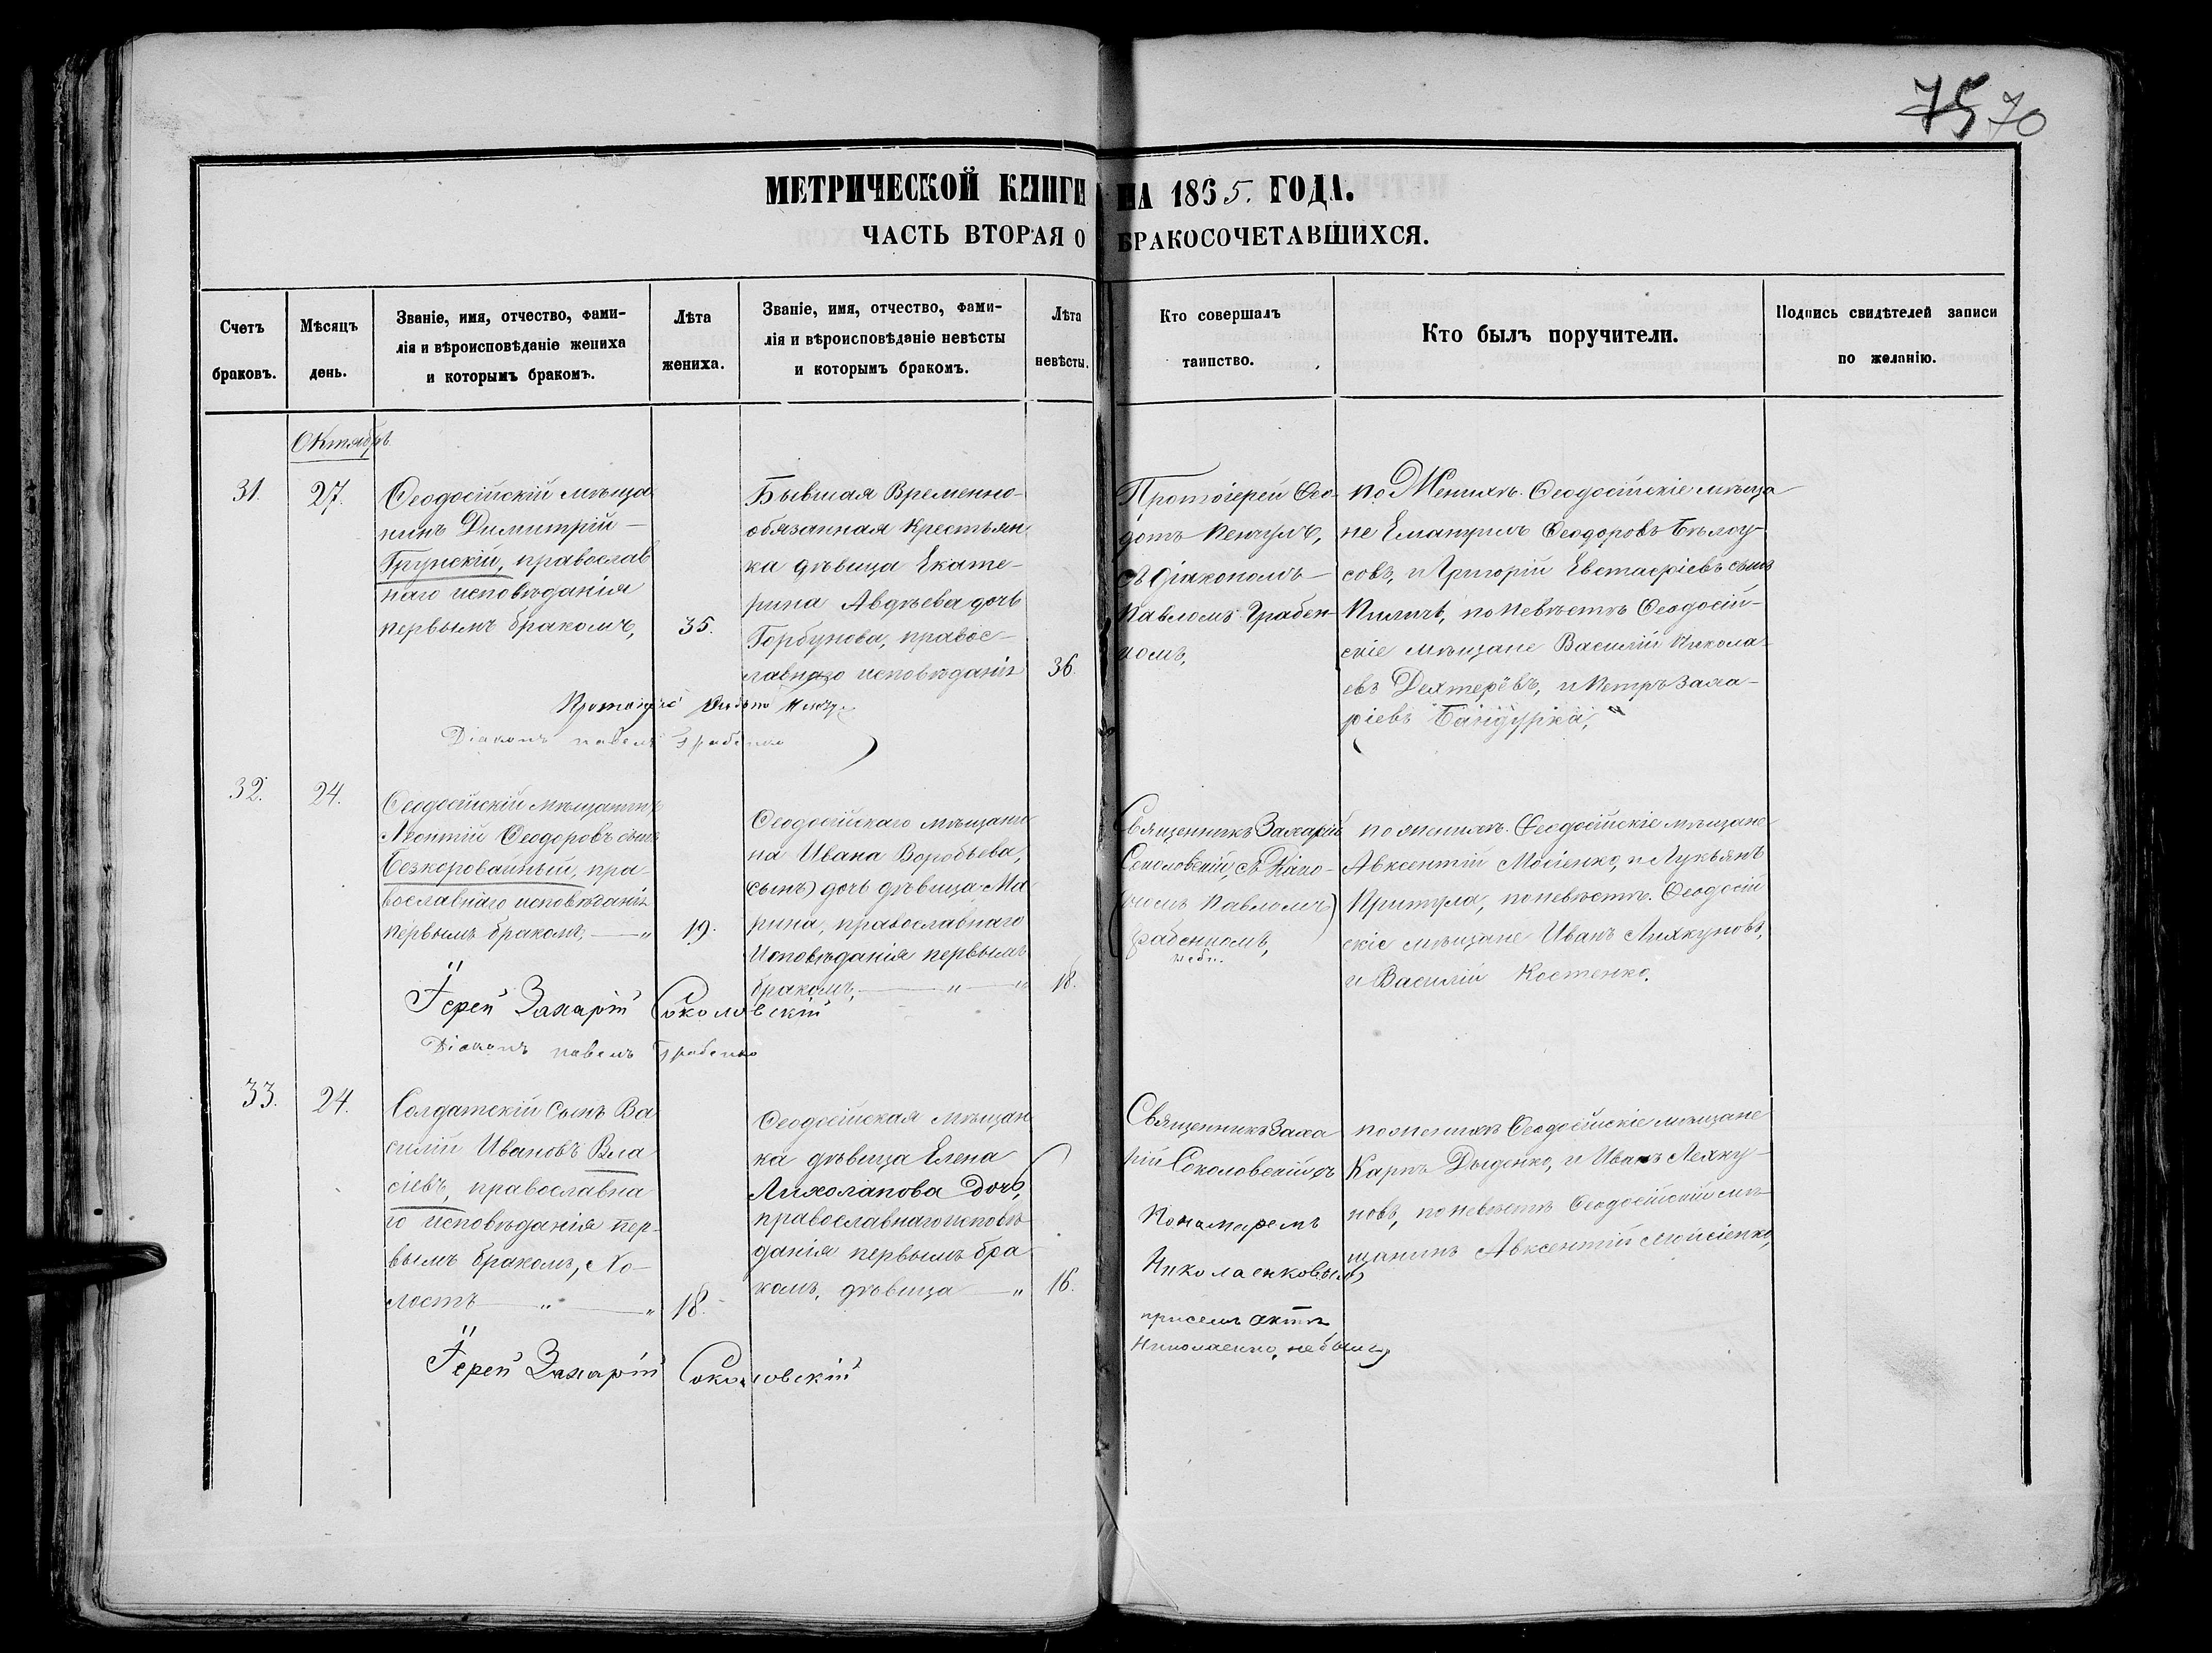 75 70
МЕТРИЧЕСКОЙ КНИГИ НА 1865. ГОДА.
ЧАСТЬ ВТОРАЯ О БРАКОСОЧЕТАВШИХСЯ.
Счетъ
браковъ.
Мѣсяцъ
день.
Званіе, имя, отчество, фами-
лія и вѣроисповѣданіе жениха
и которымъ бракомъ.
Лѣта
жениха.
Званіе, имя, отчество, фами-
лія и вѣроисповѣданіе невѣсты
и которымъ бракомъ.
Лѣта
невѣсты.
Кто совершалъ
таинство.
Кто былъ поручители.
Подпись свидѣтелей записи
по желанію.
Октябрь.
31.
27.
Ѳеодосійскій мѣща
нинъ Димитрій —
Грунскій, православ
наго исповѣданія
первымъ бракомъ,
35.
Бывшая Временно-
обязанная Крестьян
ка дѣвица Екате-
рина Авдѣева дочь
Горбунова, правос-
лавнаго исповѣданія
36.
Протоіерей Ѳео-
дотъ
съ Діакономъ —
Павломъ Грабен-
комъ,
по Женихѣ. Ѳеодосійскіе мѣща
не Емануилъ Ѳеодоровъ Бѣлоу-
совъ, и Григорій Евстафіевъ сынъ
по невѣстѣ Ѳеодосій-
скіе мѣщане Василій Никола-
евъ Дехтерёвъ, и Петръ Заха-
ріевъ Бандурка,
Протоіерей
Діаконъ павелъ Грабенко
32.
24.
Ѳеодосійскій мѣщанинъ
Леонтій Ѳеодоровъ сынъ
Безкоровайный, пра-
вославнаго исповѣданія
первымъ бракомъ, — „
19.
Ѳеодосійскаго мѣщани
на Ивана Воробьева,
(сынъ) дочь дѣвица Ма
рина, православнаго
Исповѣданія первымъ
бракомъ, — „ — „
18.
Священникъ Захарій
Соколовскій, съ Діако-
(номъ Павломъ)
Грабенкомъ,
по женихѣ. Ѳеодосійскіе мѣщане
Авксентій Мосіенко, и Лукьянъ
Притула, по невѣстѣ. Ѳеодосій
скіе мѣщане Иванъ Ляхуновъ,
и Василій Костенко.
Іерей Захарій Соколовскій
Діаконъ павелъ Грабенко
33.
24.
Солдатскій Сынъ Ва
силій Ивановъ Вла
сіевъ, православна
го исповѣданія пер-
вымъ бракомъ, Хо-
лостъ — „ — „
18.
Ѳеодосійская мѣщан
ка дѣвица Елена
Лихолапова дочь,
православнаго исповѣ
данія первымъ бра-
комъ, дѣвица — „
16.
Священникъ Заха
рій Соколовскій съ
Пономаремъ
Николаенковымъ
при семъ актѣ
Николаенко, небылъ
по женихѣ Ѳеодосійскіе мѣщане
Карпъ Дыденко, и Иванъ Ляху-
новъ, по невѣстѣ Ѳеодосійскій мѣ-
щанинъ Авксентій Мойсіенко,
Іерей Захарій Соколовскій